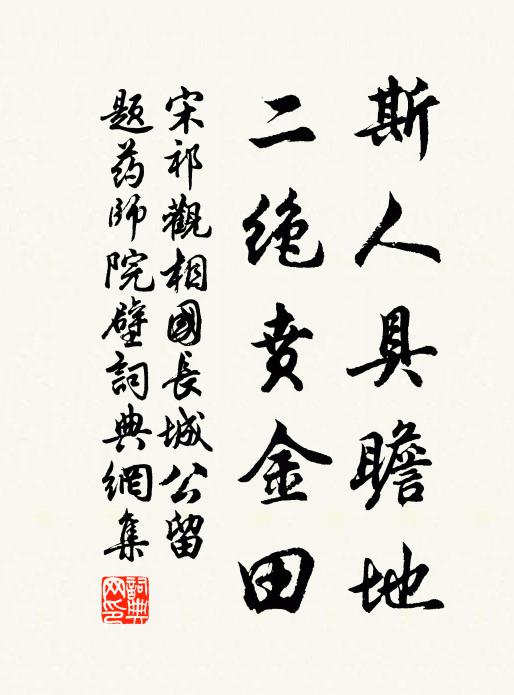 斯人具瞻地
二绝贲金田
宋祁觀相國長城公留
题药師院壁詞典網集
詞典
网印